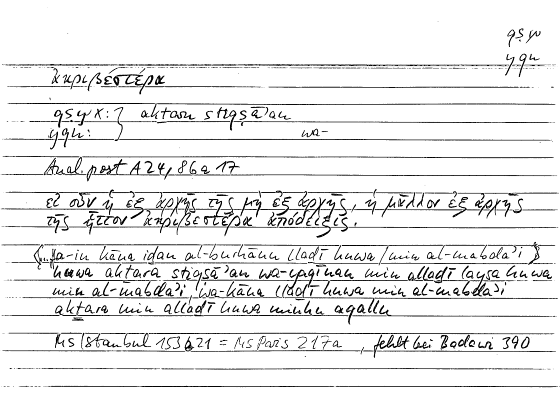 qṣy
yqn
ἀκριβέστερα
qṣy X: } akṯaru stiqṣāʾan
yqn: } wa-
Anal. post A 24, 86a 17
εἰ οὖν ἡ ἐξ ἀρχῆς τῆς μὴ ἐξ ἀρχῆς, ἡ μᾶλλον ἐξ ἀρχῆς
τῆς ἧττον ἀκριβεστέρα ἀπόδειξις.
fa-in kāna iḏan al-burhānu lladī huwa / min al-mabdaʾi
huwa akṯara stiqṣāʾan wa-yaqīnan min alladī laysa huwa
min al-mabdaʾi, wa-kāna lladī huwa min al-mabdaʾi
akṯara min alladī huwa minhu aqallu
Ms Istanbul 153b21 = Ms Paris 217a , fehlt bei Badawi 390